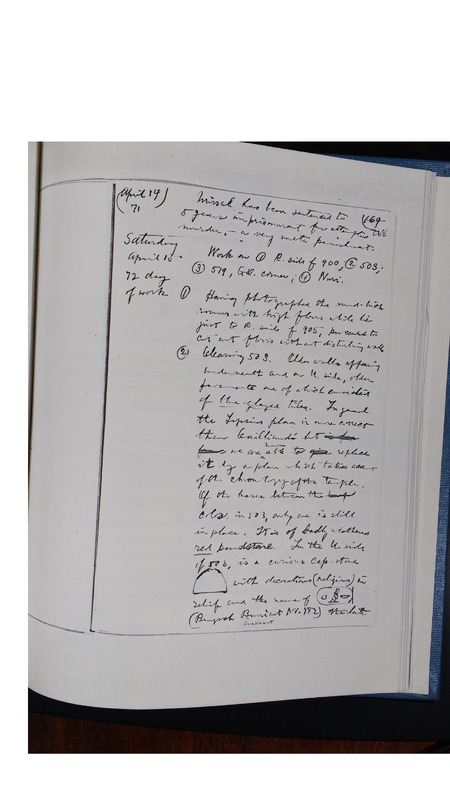 (April 14)
71
169
has been sentenced to
5 years imprisonment for attempted
murder, - a very punishment.
Saturday
April 15
72 day
of work
Work on ① R. side of 900, ② 503.
③ 519, corner, ④ Nuri.
① Having photographed the mud-brick
rooms with high floors which lie
just to R. side of 905, proceeded to
out floors without disturbing walls
② Cleaning 503. Older walls appearing
underneath and on W. side, older
pavements one of which consisted
of blue-glazed tiles. In general
the Lepsius plan is more correct
than Cailliaud's but
we are able to replace
it by a plan which takes
of the chronology of the temple.
Of the bases between the
cols. in 503, only one is still
in place. It is of badly weathered
red sandstone. In the W. side
of 503, is a curious cap-stone
with decorations (religious) in
relief and the name of